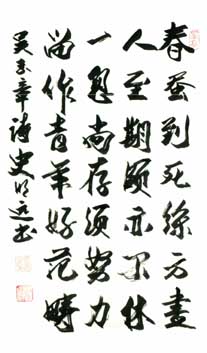 春蚕到死絲方盡
人至期頤亦不休
一息尚存須努力
留作青年好范疇
吴玉章詩史明远书